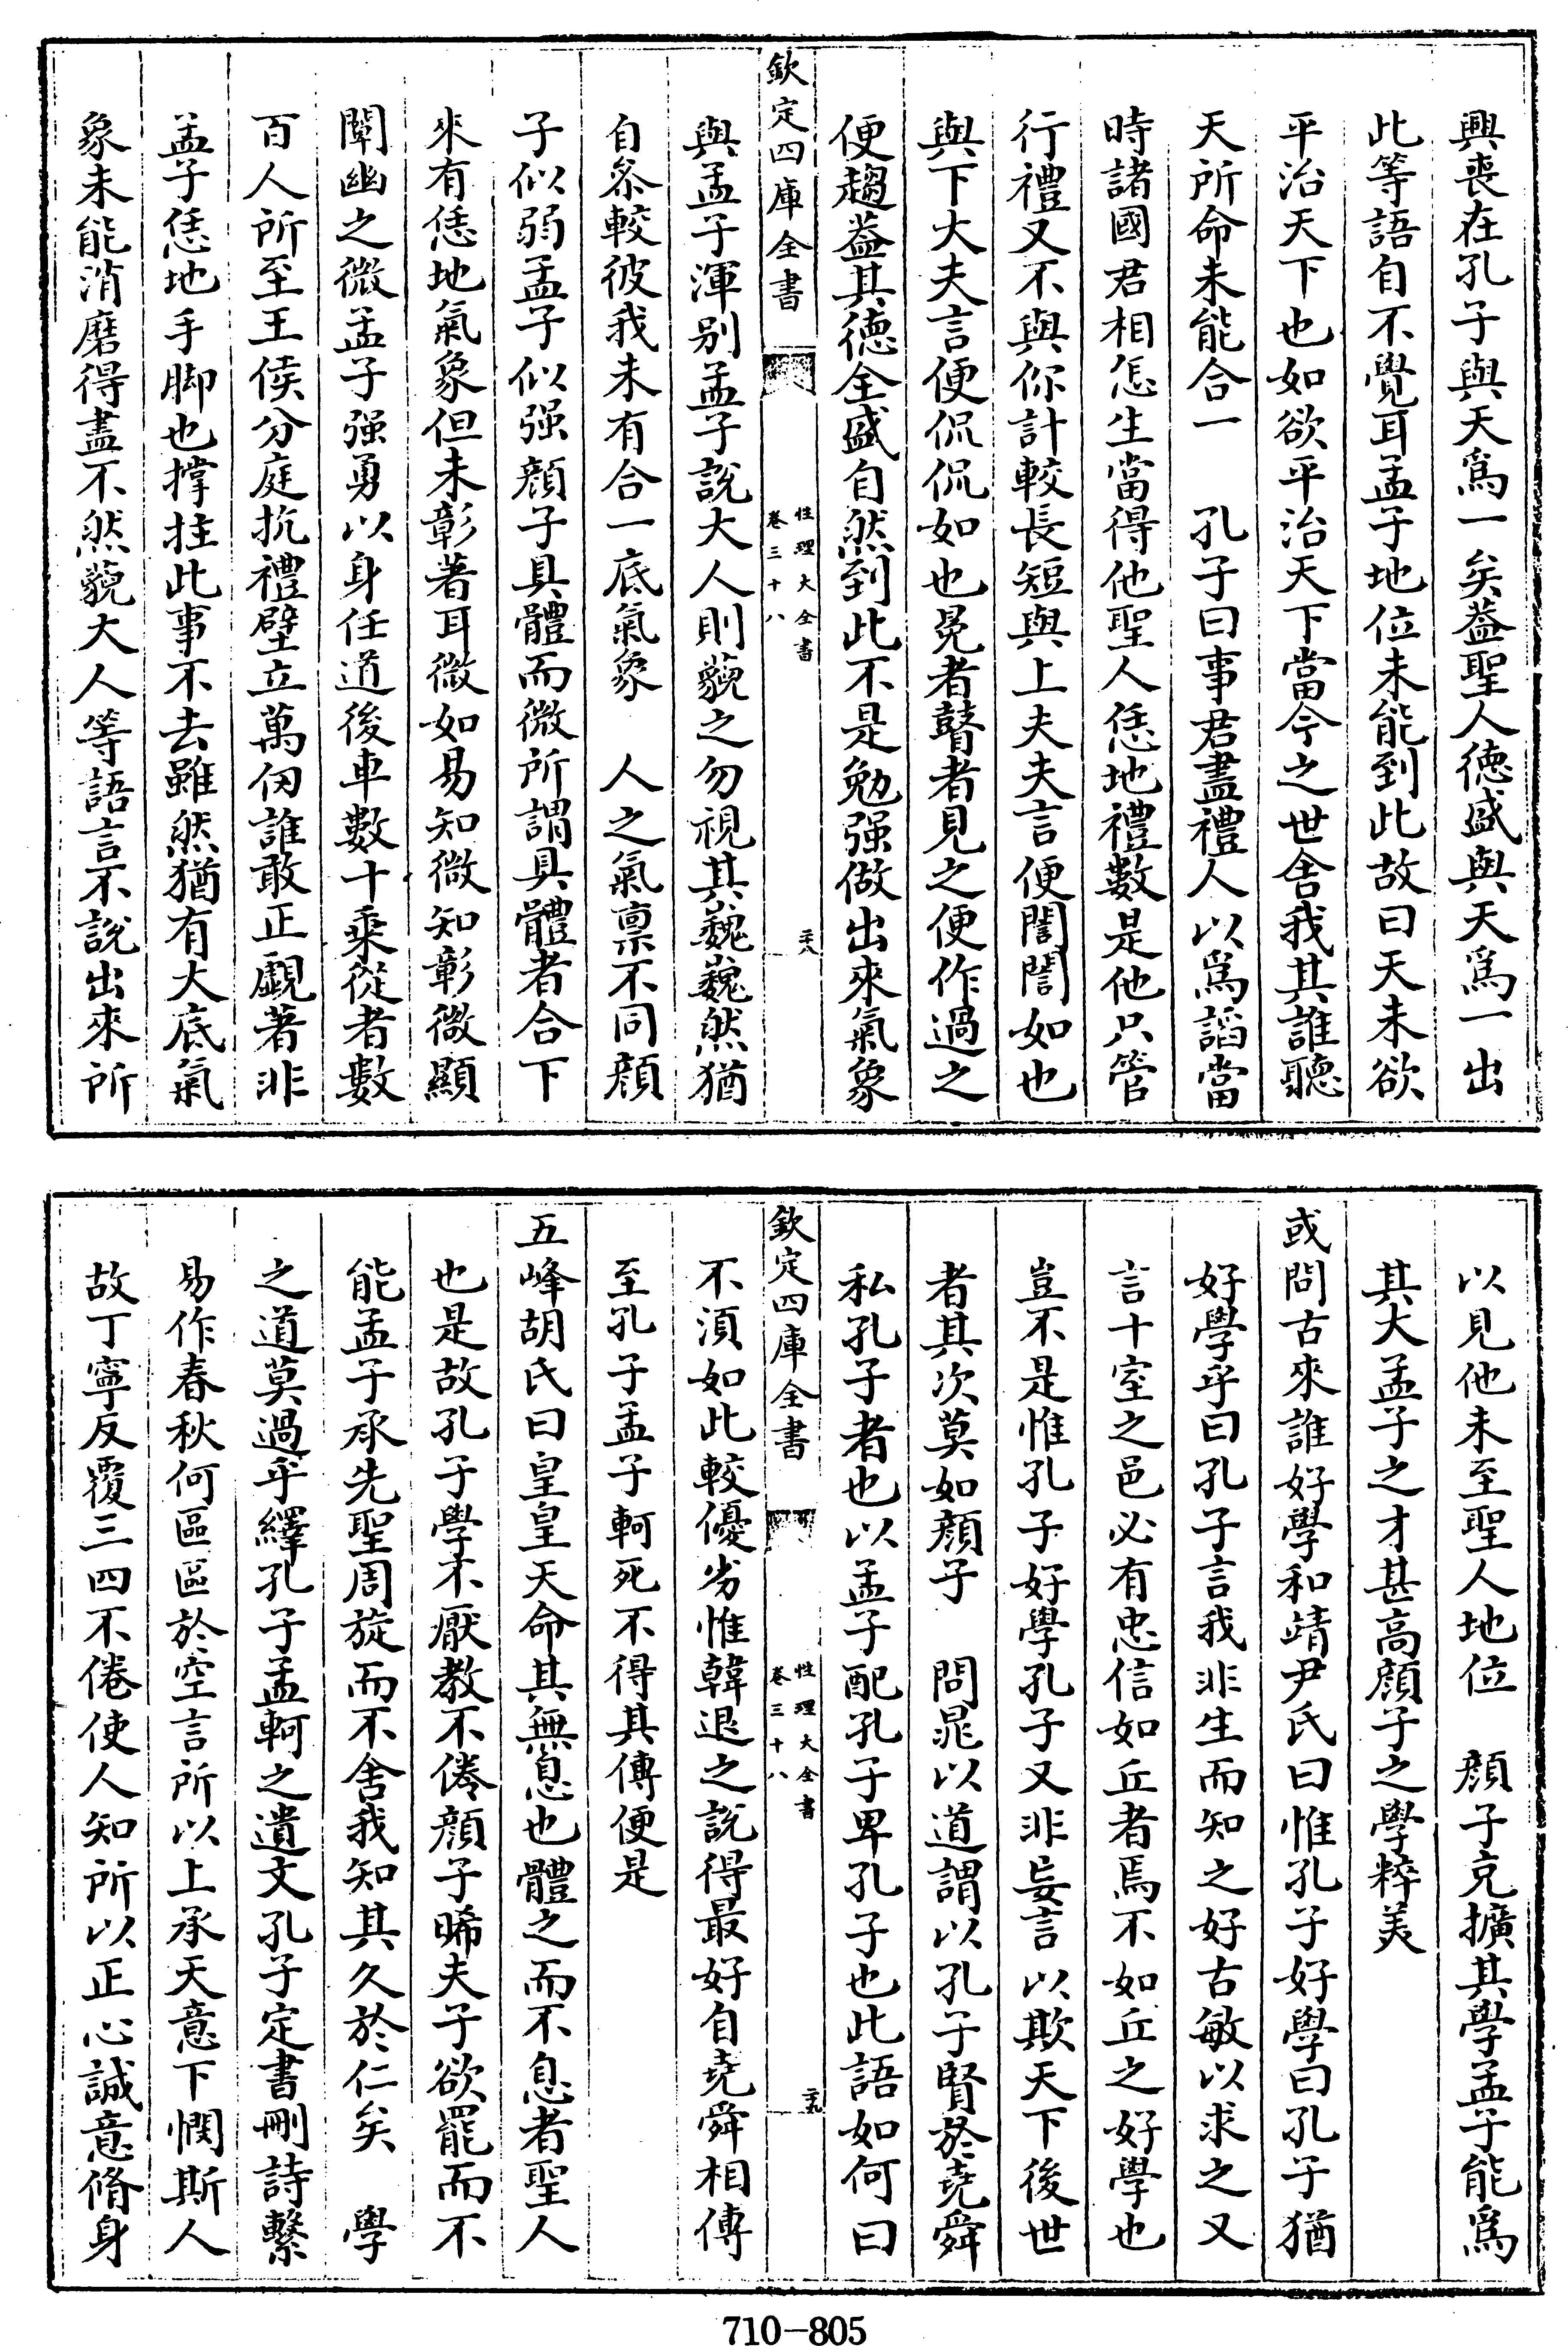 興喪在孔子與天爲一矣葢聖人徳盛與天爲一出
此等語自不覺耳孟子地位未能到此故曰天未欲
平治天下也如欲平治天下當今之世舍我其誰聽
天所命未能合一　孔子曰事君盡禮人以爲謟當
時諸國君相怎生當得他聖人恁地禮數是他只管
行禮又不與你計較長短與上夫夫言便誾誾如也
與下大夫言便侃侃如也冕者瞽者見之便作過之
便趨葢其徳全盛自然到此不是勉强做出來氣象
欽定四庫全書
性理大全書
卷三十八
二十八
與孟子渾别孟子說大人則藐之勿視其巍巍然猶
自叅較彼我未有合一底氣象　人之氣禀不同顔
子似弱孟子似强顔子具體而微所謂具體者合下
來有恁地氣象但未彰著耳微如易知微知彰微顯
闡幽之微孟子强勇以身任道後車數十乘從者數
百人所至王侯分庭抗禮壁立萬仞誰敢正覷著非
孟子恁地手脚也撑拄此事不去雖然猶有大底氣
象未能消磨得盡不然藐大人等語言不說出來所
以見他未至聖人地位　顔子克擴其學孟子能爲
其大孟子之才甚高顔子之學粹美
或問古來誰好學和靖尹氏曰惟孔子好學曰孔子猶
好學乎曰孔子言我非生而知之好古敏以求之又
言十室之邑必有忠信如丘者焉不如丘之好學也
豈不是惟孔子好學孔子又非妄言以欺天下後世
者其次莫如顔子　問晁以道謂以孔子賢於堯舜
私孔子者也以孟子配孔子卑孔子也此語如何曰
欽定四庫全書
性理大全書
卷三十八
二十九
不須如此較優劣惟韓退之說得最好自堯舜相傳
至孔子孟子軻死不得其傳便是
五峰胡氏曰皇皇天命其無息也體之而不息者聖人
也是故孔子學不厭教不倦顔子晞夫子欲罷而不
能孟子承先聖周旋而不舍我知其久於仁矣　學
之道莫過乎繹孔子孟軻之遺文孔子定書刪詩繫
易作春秋何區區於空言所以上承天意下憫斯人
故丁寧反覆三四不倦使人知所以正心誠意脩身
710-805